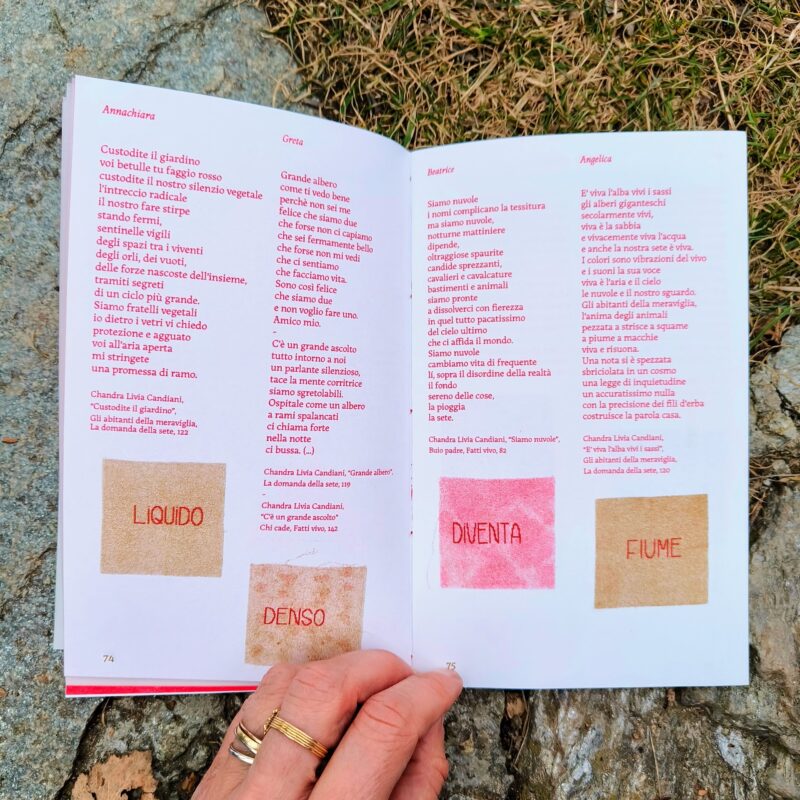 Annachiara
Custodite il giardino
voi betulle tu faggio rosso
custodite il nostro silenzio vegetale
l'intreccio radicale
il nostro fare stirpe
stando fermi,
sentinelle vigili
degli spazi tra i viventi
degli orli, dei vuoti,
delle forze nascoste dell'insieme,
tramiti segreti
di un ciclo più grande.
Siamo fratelli vegetali
io dietro i vetri vi chiedo
protezione e agguato
voi all'aria aperta
mi stringete
una promessa di ramo.
Chandra Livia Candiani,
"Custodite il giardino",
Gli abitanti della meraviglia,
La domanda della sete, 122
LIQUIDO
74
Greta
Grande albero
come ti vedo bene
perchè non sei me
felice che siamo due
che forse non ci capiamo
che sei fermamente bello
che forse non mi vedi
che ci sentiamo
che facciamo vita.
Sono così felice
che siamo due
e non voglio fare uno.
Amico mio.
-
C'è un grande ascolto
tutto intorno a noi
un parlante silenzioso,
tace la mente corritrice
siamo sgretolabili.
Ospitale come un albero
a rami spalancati
ci chiama forte
nella notte
ci bussa. (...)
Chandra Livia Candiani, "Grande albero",
La domanda della sete, 119
-
Chandra Livia Candiani,
"C'è un grande ascolto"
Chi cade, Fatti vivo, 142
DENSO
Beatrice
Siamo nuvole
i nomi complicano la tessitura
ma siamo nuvole,
notturne mattiniere
dipende,
oltraggiose spaurite
candide sprezzanti,
cavalieri e cavalcature
bastimenti e animali
siamo pronte
a dissolverci con fierezza
in quel tutto pacatissimo
del cielo ultimo
che ci affida il mondo.
Siamo nuvole
cambiamo vita di frequente
lì, sopra il disordine della realtà
il fondo
sereno delle cose,
la pioggia
la sete.
Chandra Livia Candiani, "Siamo nuvole",
Buio padre, Fatti vivo, 82
DIVENTA
75
Angelica
E' viva l'alba vivi i sassi
gli alberi giganteschi
secolarmente vivi,
viva è la sabbia
e vivacemente viva l'acqua
e anche la nostra sete è viva.
I colori sono vibrazioni del vivo
e i suoni la sua voce
viva è l'aria e il cielo
le nuvole e il nostro sguardo.
Gli abitanti della meraviglia,
l'anima degli animali
pezzata a strisce a squame
a piume a macchie
viva e risuona.
Una nota si è spezzata
sbriciolata in un cosmo
una legge di inquietudine
un accuratissimo nulla
con la precisione dei fili d'erba
costruisce la parola casa.
Chandra Livia Candiani,
"E' viva l'alba vivi i sassi",
Gli abitanti della meraviglia,
La domanda della sete, 120
FIUME